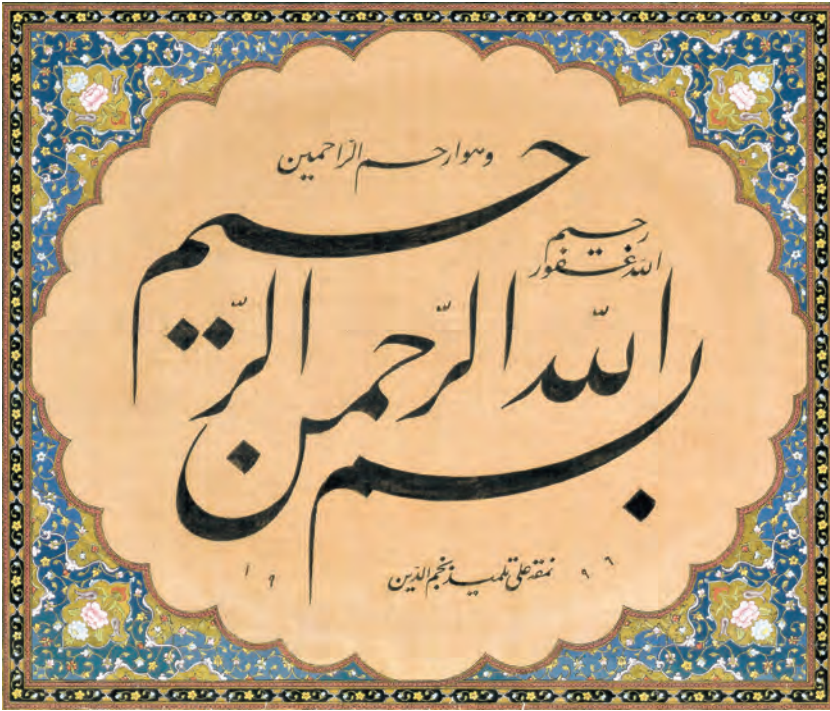 وهو ارحم الرّاحمين
الله غفور
رحيم
بسم الله الرّحمن الرّحيم
نمقه علي تلميذ نجم الدّين
١٩ ٩٦